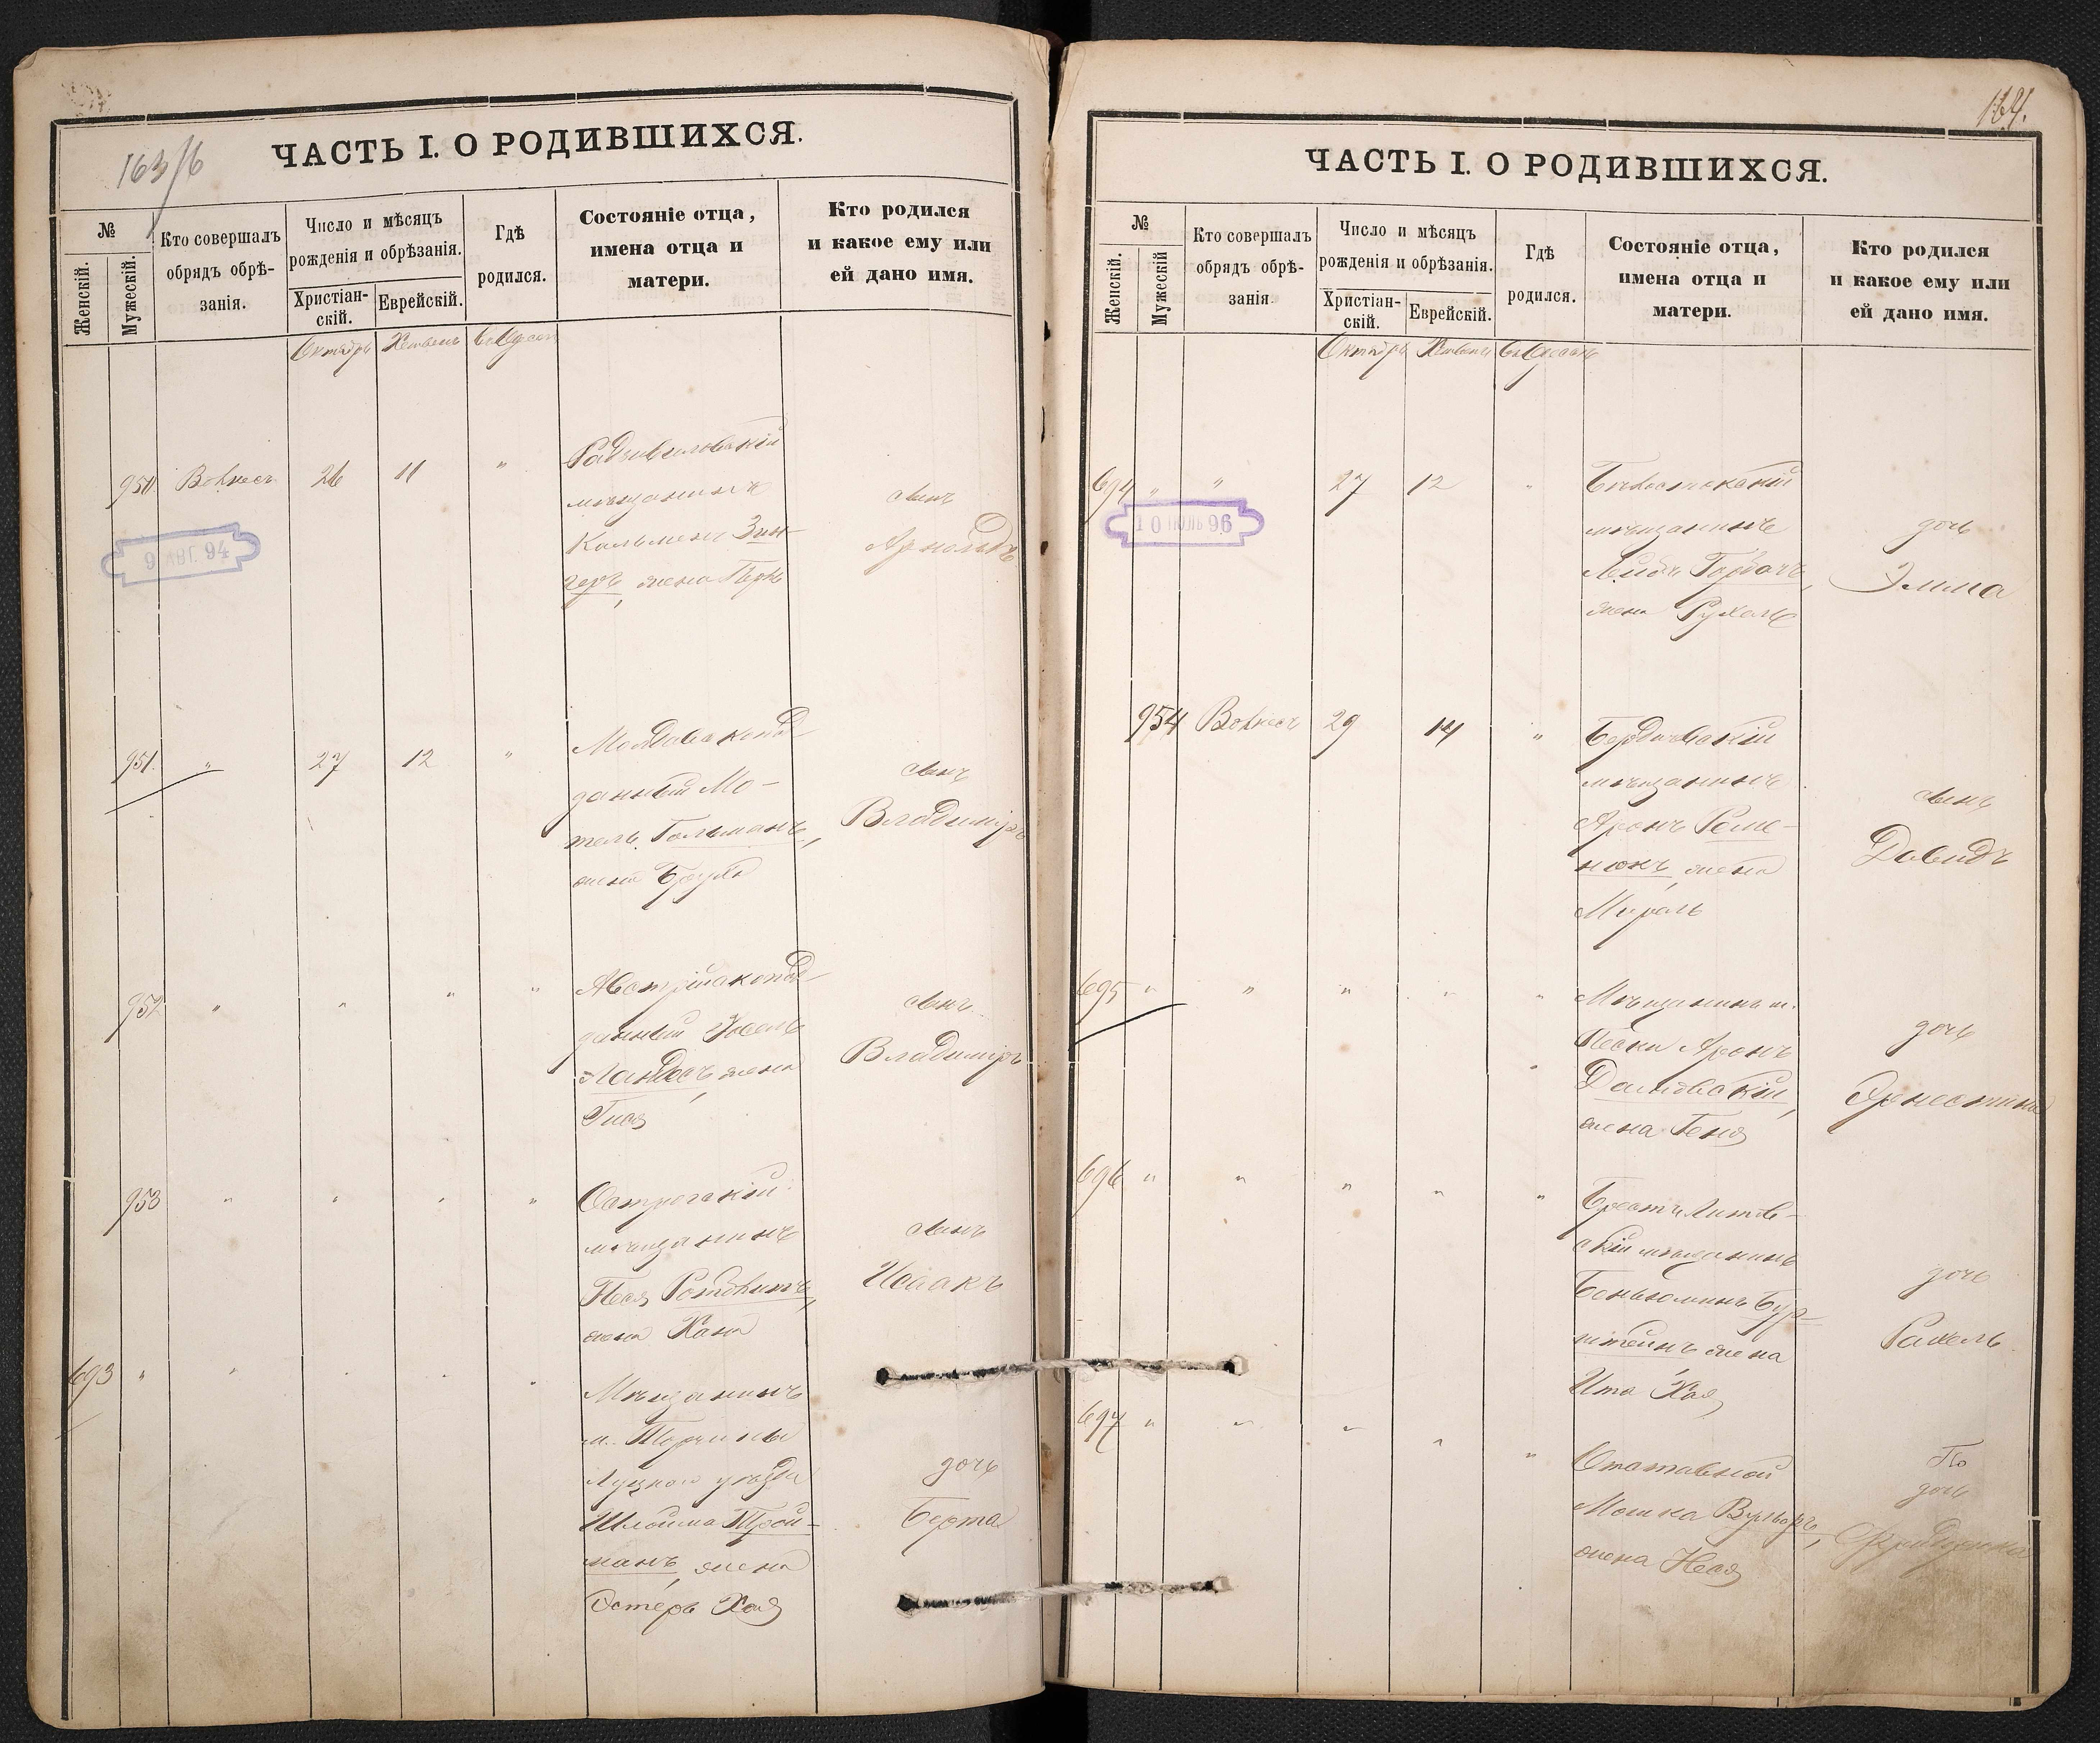 163/6
ЧАСТЬ I. О РОДИВШИХСЯ.
№
Женскій.
Мужескій.
Кто совершалъ
обрядъ обрѣ-
занія.
Число и мѣсяцъ
рожденія и обрѣзанія.
Христіан-
скій.
Еврейскій.
Гдѣ
родился.
Состояніе отца,
имена отца и
матери.
Кто родился
и какое ему или
ей дано имя.
Октябрь
950
26
11
"
Радзивиловскій
мѣщанинъ
Кальменъ Зин-
геръ, жена Перль
сынъ
Арнольдъ
9 АВГ. 94
951.
"
27
12
"
Молдавскопод-
данный Мо-
тель Гольманъ,
жена Брухе
сынъ
Владиміръ
952
"
"
"
"
Австрійскопод-
данный
Ландесъ, жена
Гися
сынъ
Владиміръ
953
"
"
"
"
Острогскій
мѣщанинъ
Песя
жена Хана
сынъ
Исаакъ
693
"
"
"
"
"
Мѣщанинъ
м. Торчина
Луцкаго уѣзда
Шлойма Трой-
манъ, жена
Эстеръ Хая
дочь
Берта
164.
ЧАСТЬ I. О РОДИВШИХСЯ.
№
Женскій.
Мужескій
Кто совершалъ
обрядъ обрѣ-
занія
Число и мѣсяцъ
рожденія и обрѣзанія.
Христіан-
скій.
Еврейскій.
Гдѣ
родился.
Состояніе отца,
имена отца и
матери.
Кто родился
и какое ему или
ей дано имя.
Октябрь
694
"
"
27
12
"
Бѣлостокскій
мѣщанинъ
Лейбъ Горбачъ,
жена Рухель
дочь
Эмма
10 ІЮЛЬ 96
954
29
14
"
Бердичевскій
мѣщанинъ
Аронъ Реме-
нюкъ, жена
Мираль
сынъ
Давидъ
695
"
"
"
"
"
Мѣщанинъ м.
Пески Аронъ
жена Геня
дочь
Эрнестина
696
"
"
"
"
"
Брестъ Литов-
скій мѣщанинъ
Беньюминъ Бур-
штейнъ жена
Ита Хая
дочь
Рахель
697
"
"
"
"
"
Отставной
Мошка
жена Неся
дочь